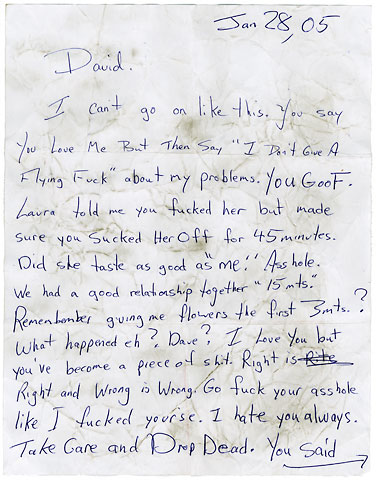 Jan 28, 05
David.
I can't go on like this. You say
You Love Me But Then Say "I Don't Give A
Flying Fuck" about my problems. You GooF.
Laura told me you fucked her but made
sure you Sucked Her Off for 45 minutes.
Did she taste as good as "me!" Asshole.
We had a good relationship together "15 mts."
Remember giving me flowers the first 3 mts.?
What happened eh? Dave? I Love You but
you've become a piece of shit. Right is
Right and Wrong is Wrong. Go fuck your asshole
like I fucked yours. I hate you always.
Take Care and Drop Dead. You said →